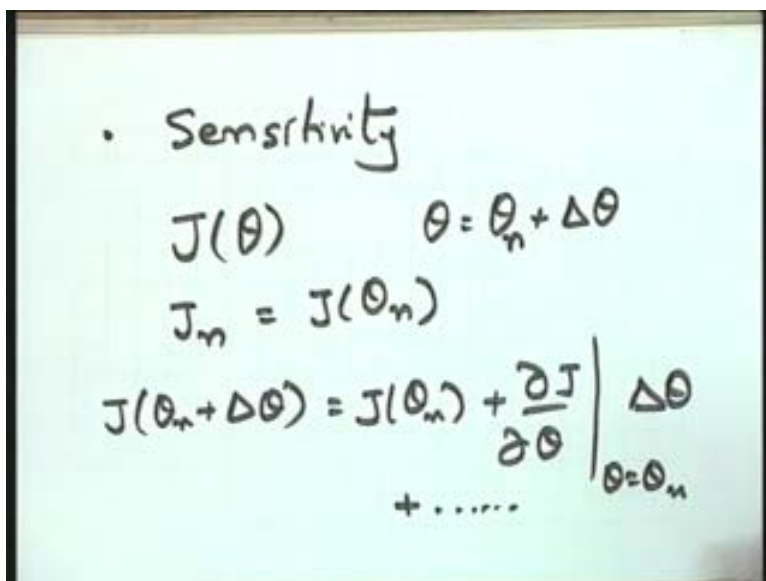 · Sensitivity
J(θ) θ = θₙ + Δθ
Jₙ = J(θₙ)
J(θₙ + Δθ) = J(θₙ) + ∂J/∂θ |θ=θₙ Δθ
+ ......